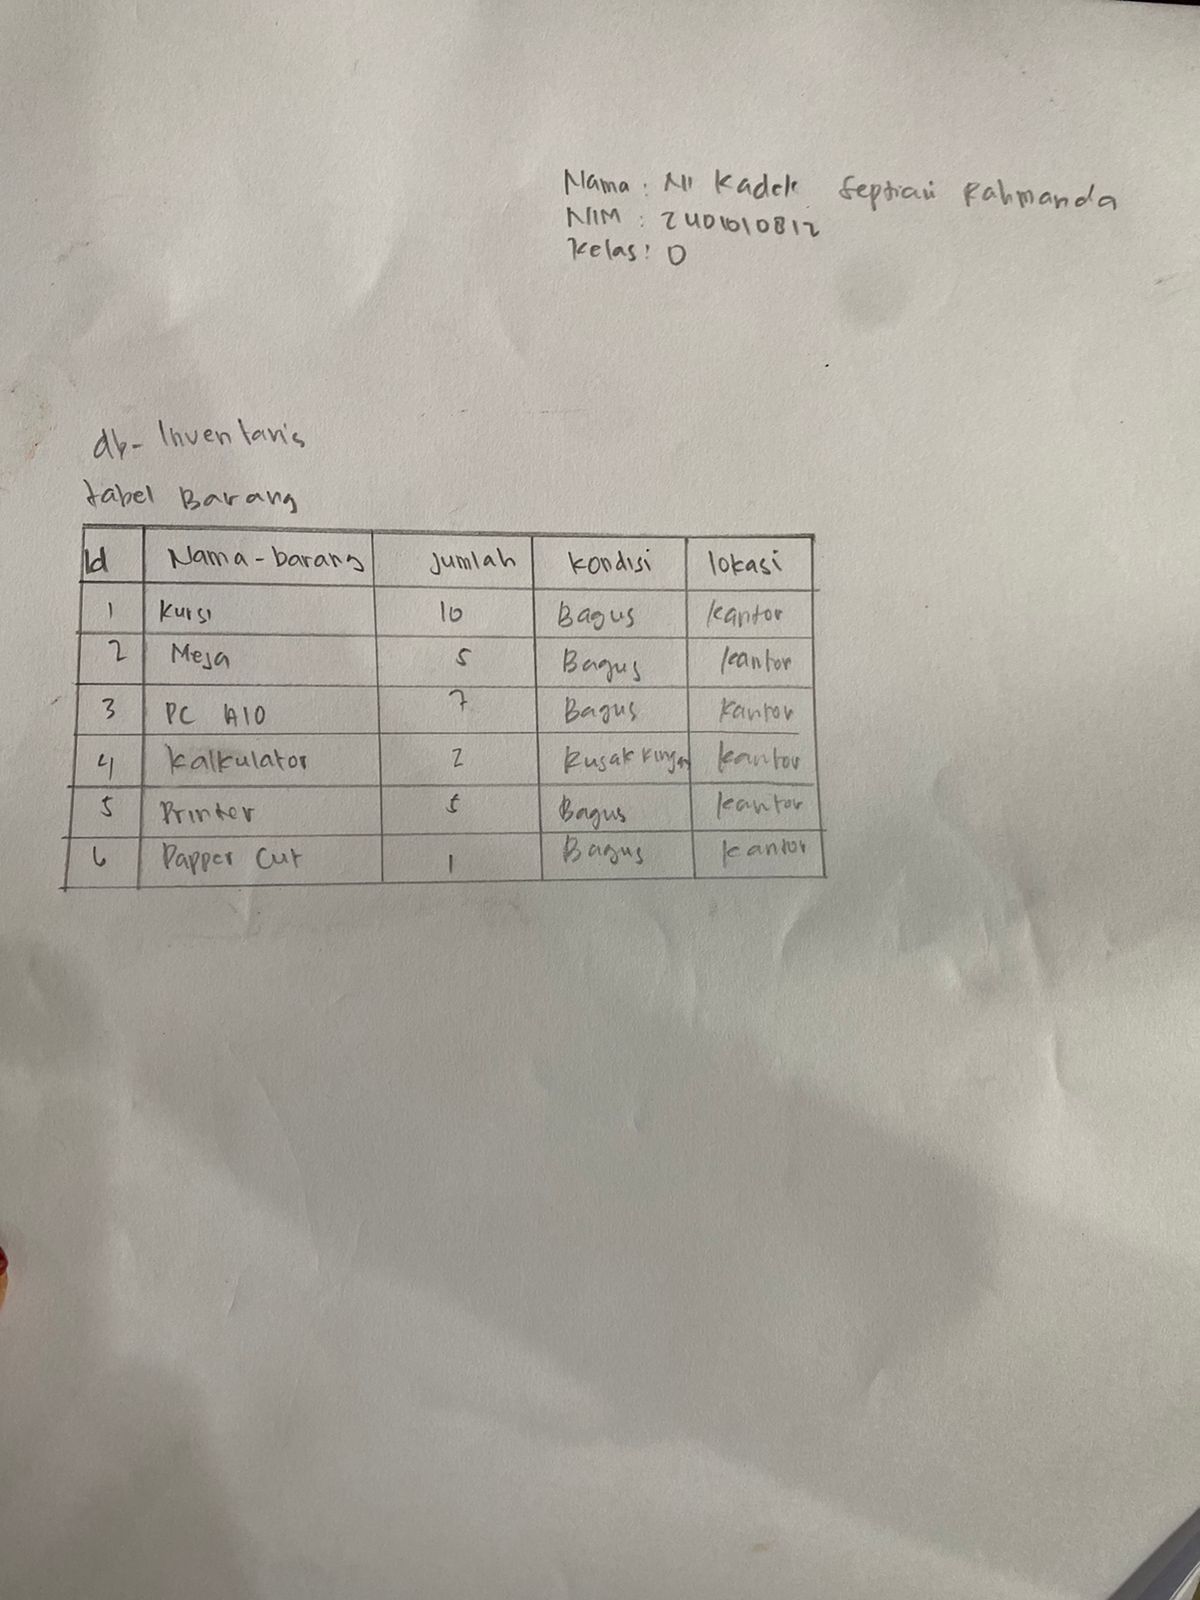 Nama : Ni Kadek Septiari Rahmanda
NIM : 2401010812
Kelas : D
db- Inventaris
tabel Barang
Id Nama-barang Jumlah kondisi lokasi
1 Kursi 10 Bagus kantor
2 Meja 5 Bagus kantor
3 PC AIO 7 Bagus Kantor
4 kalkulator 2 Rusak kantor
5 Printer 5 Bagus kantor
6 Papper Cut 1 Bagus kantor